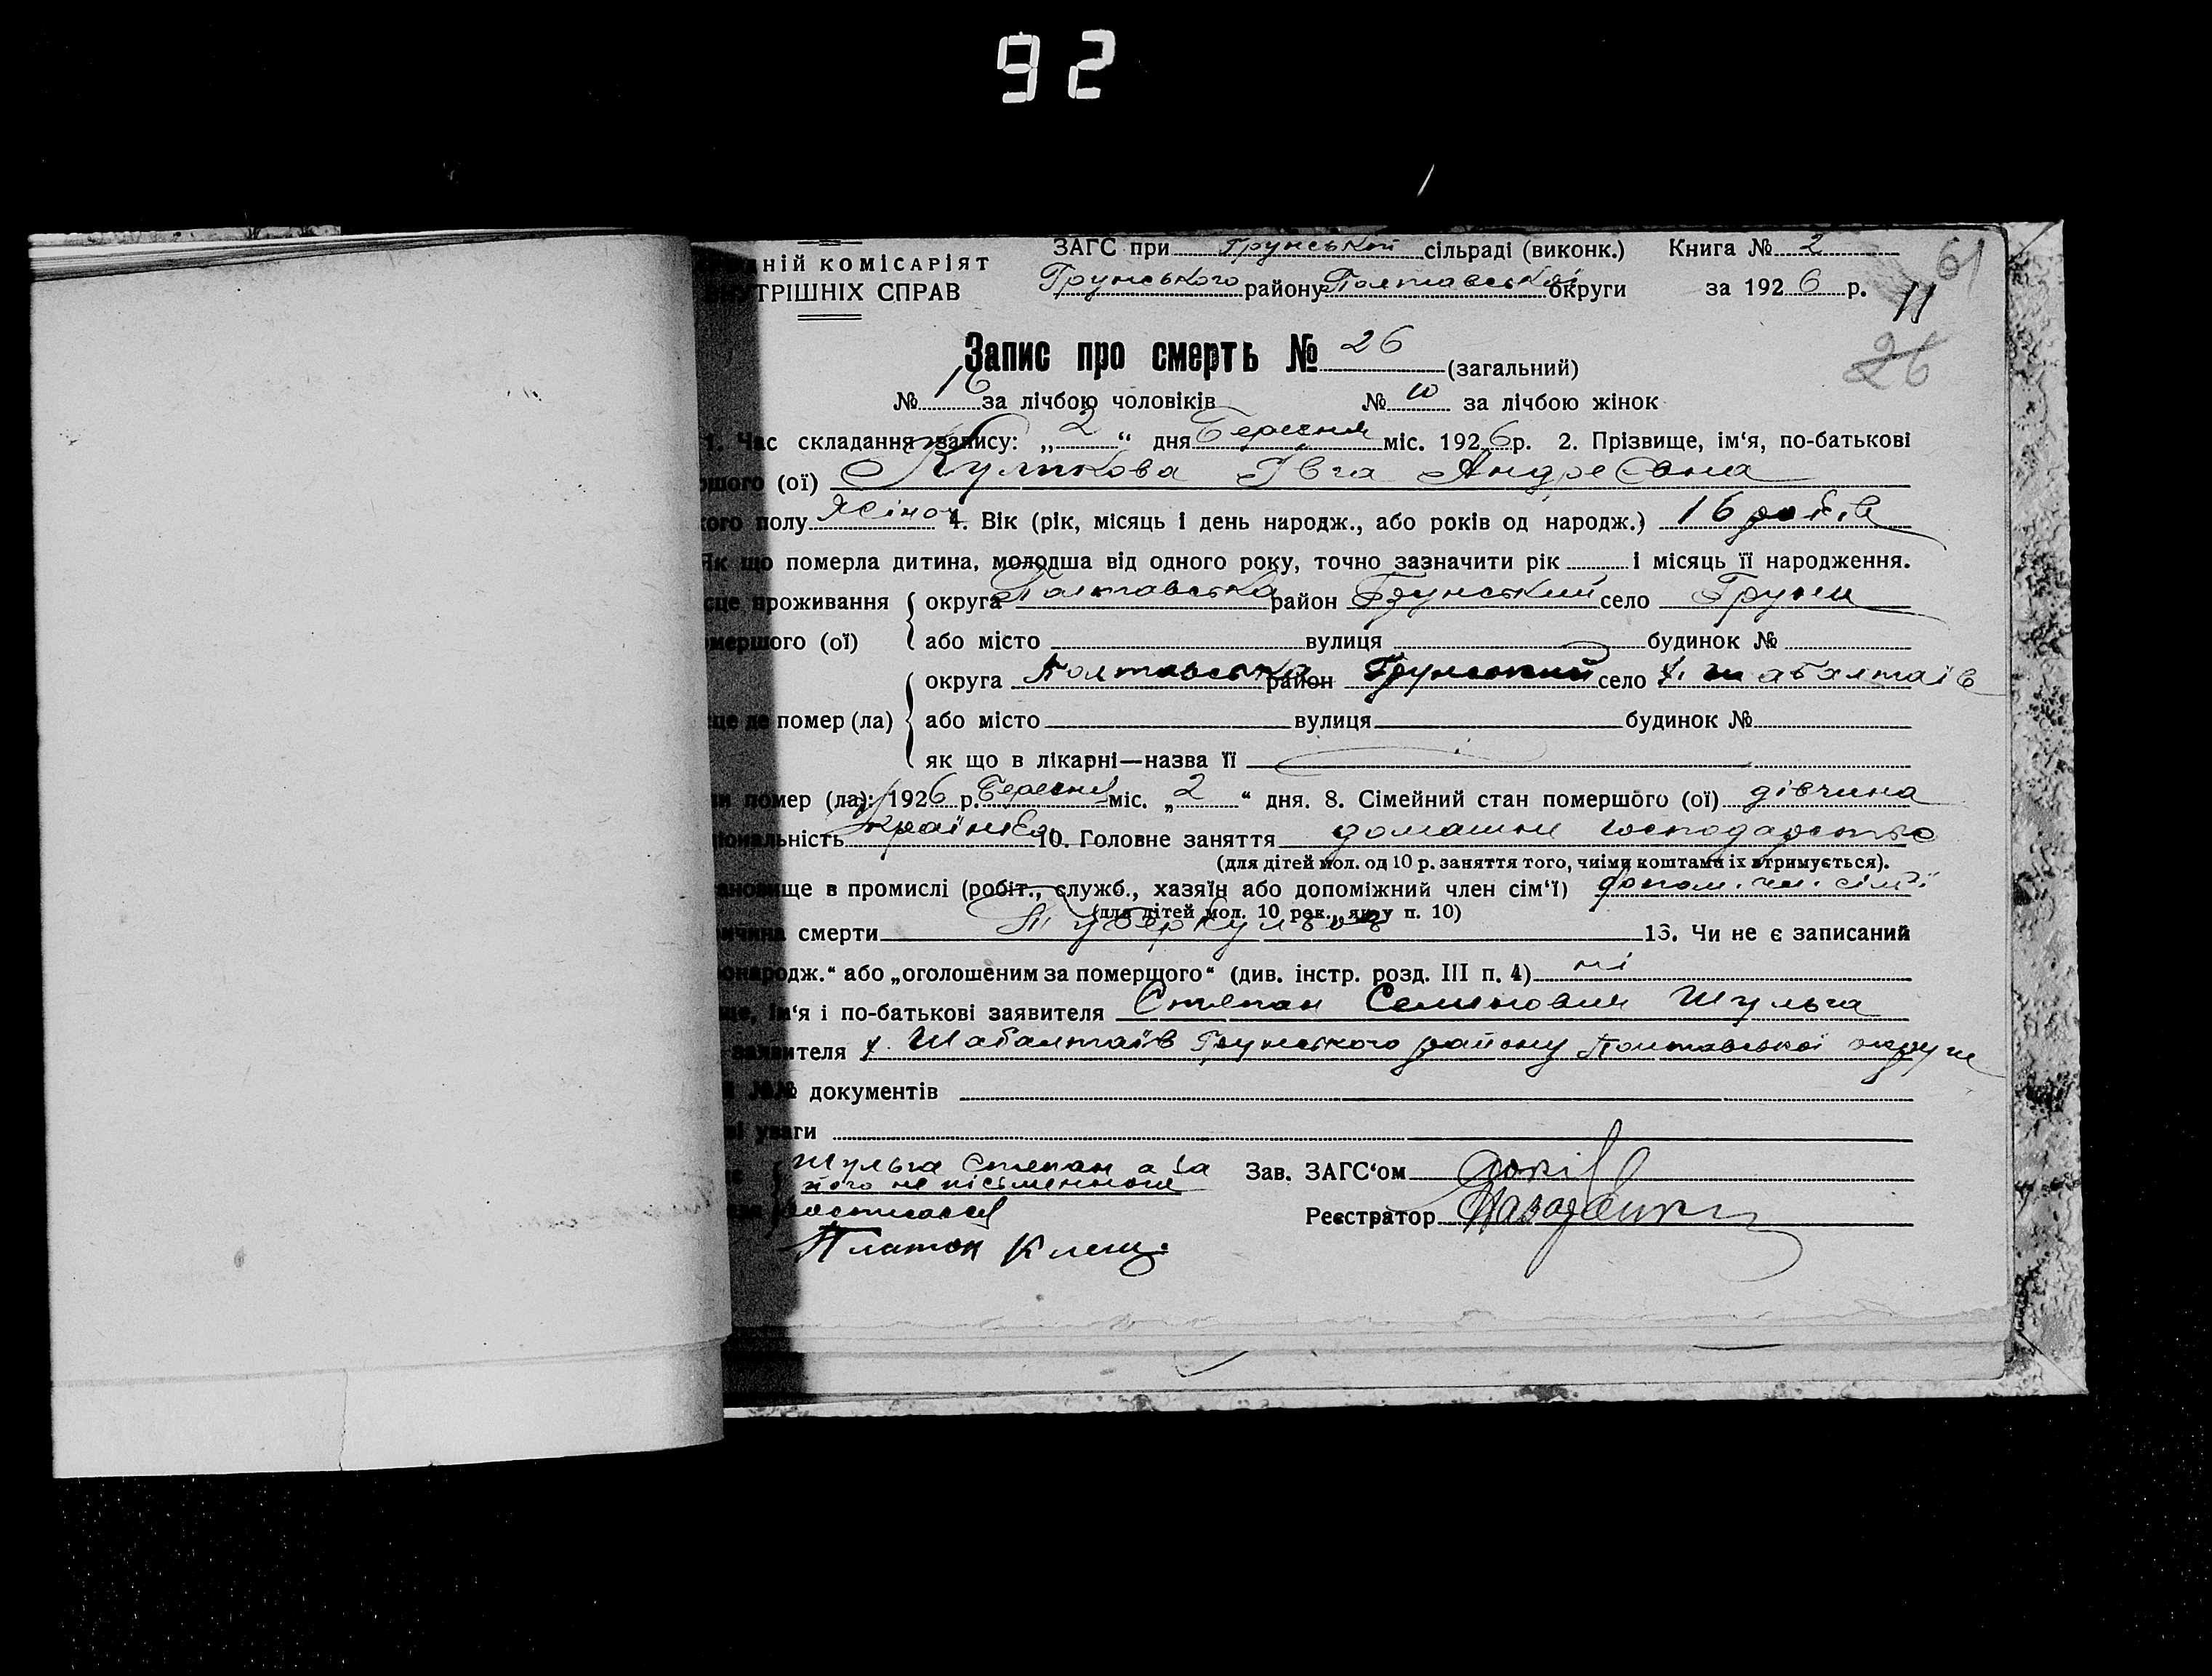 92
ЗАГС при Грунській сільраді (виконк.) Книга № 2
61
ній комісаріят
Грунського району Полтавської округи за 1926 р.
11
трішніх справ
Запис про смерть № 26 (загальний)
26
№ 16 за лічбою чоловіків № 10 за лічбою жінок
1. Час складання запису: „2“ дня Березня міс. 1926 р. 2. Прізвище, ім‘я, по-батькові
(ої) Куликова Івга Андреєвна
полу жіноч 4. Вік (рік, місяць і день народж., або років од народж.) 16 років
Як що померла дитина, молодша від одного року, точно зазначити рік і місяць її народження.
проживання округа Полтавська район Грунський село Груни
(ої) або місто вулиця будинок №
округа Полтавська район Грунський село х. Шабалтаїв
де помер (ла) або місто вулиця будинок №
як що в лікарні—назва її
помер (ла): 1926 р. Березня міс. „2“ дня. 8. Сімейний стан помершого (ої) дівчина
Україн 10. Головне заняття домашнє господарство
(для дітей мол. од 10 р. заняття того, чиїми коштами їх втримується).
в промислі (робіт., служб., хазяїн або допоміжний член сім‘ї) допом. чл. сімї
(для дітей мол. 10 рок., як у п. 10)
смерти Туберкульоз 13. Чи не є записаний
“ або „оголошеним за померщого“ (див. інстр. розд. III п. 4) ні
ім‘я і по-батькові заявителя Степан Семенович Шульга
заявителя х. Шабалтаїв Грунського району Полтавської округи
№№ документів
уваги
Шульга Степан а за Зав. ЗАГС‘ом
його не письменного
росписався Реєстратор
Платон Клещ.